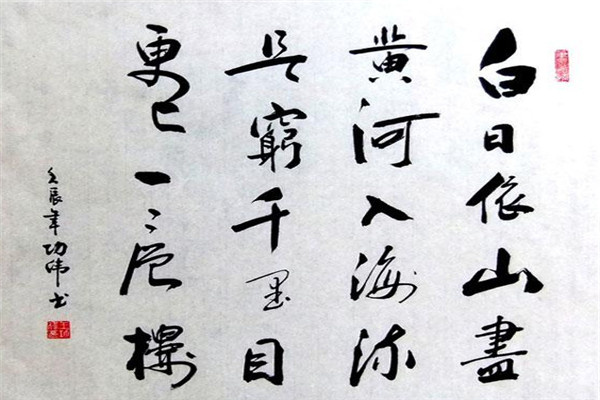 白日依山盡
黄河入海流
欲窮千里目
更上一层樓
壬辰年功偉书